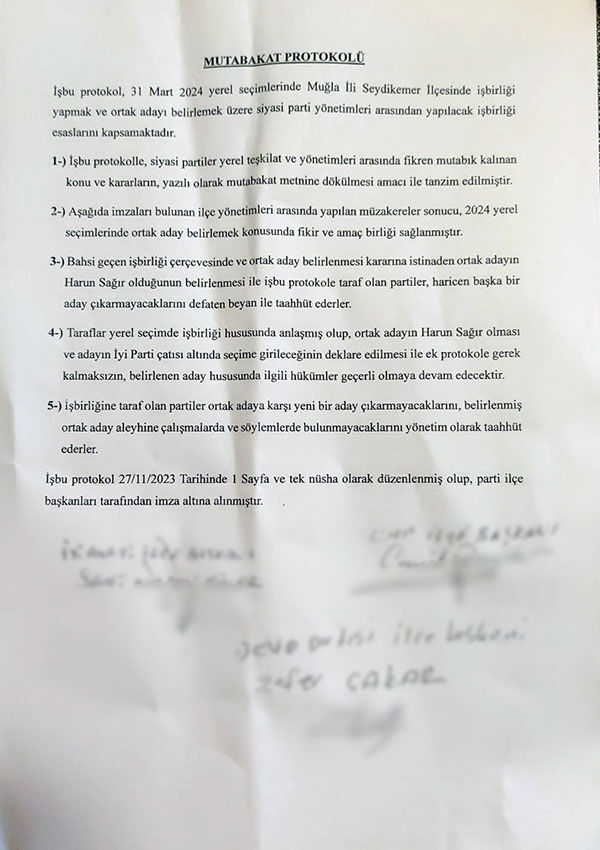 MUTABAKAT PROTOKOLÜ
İşbu protokol, 31 Mart 2024 yerel seçimlerinde Muğla İli Seydikemer İlçesinde işbirliği
yapmak ve ortak adayı belirlemek üzere siyasi parti yönetimleri arasından yapılacak işbirliği
esaslarını kapsamaktadır.
1-) İşbu protokolle, siyasi partiler yerel teşkilat ve yönetimleri arasında fikren mutabık kalınan
konu ve kararların, yazılı olarak mutabakat metnine dökülmesi amacı ile tanzim edilmiştir.
2-) Aşağıda imzaları bulunan ilçe yönetimleri arasında yapılan müzakereler sonucu, 2024 yerel
seçimlerinde ortak aday belirlemek konusunda fikir ve amaç birliği sağlanmıştır.
3-) Bahsi geçen işbirliği çerçevesinde ve ortak aday belirlenmesi kararına istinaden ortak adayın
Harun Sağır olduğunun belirlenmesi ile işbu protokole taraf olan partiler, haricen başka bir
aday çıkarmayacaklarını defaten beyan ile taahhüt ederler.
4-) Taraflar yerel seçimde işbirliği hususunda anlaşmış olup, ortak adayın Harun Sağır olması
ve adayın İyi Parti çatısı altında seçime girileceğinin deklare edilmesi ile ek protokole gerek
kalmaksızın, belirlenen aday hususunda ilgili hükümler geçerli olmaya devam edecektir.
5-) İşbirliğine taraf olan partiler ortak adaya karşı yeni bir aday çıkarmayacaklarını, belirlenmiş
ortak aday aleyhine çalışmalarda ve söylemlerde bulunmayacaklarını yönetim olarak taahhüt
ederler.
İşbu protokol 27/11/2023 Tarihinde 1 Sayfa ve tek nüsha olarak düzenlenmiş olup, parti ilçe
başkanları tarafından imza altına alınmıştır.
CHP İLÇE BAŞKANI
ilçe başkanı
Zafer